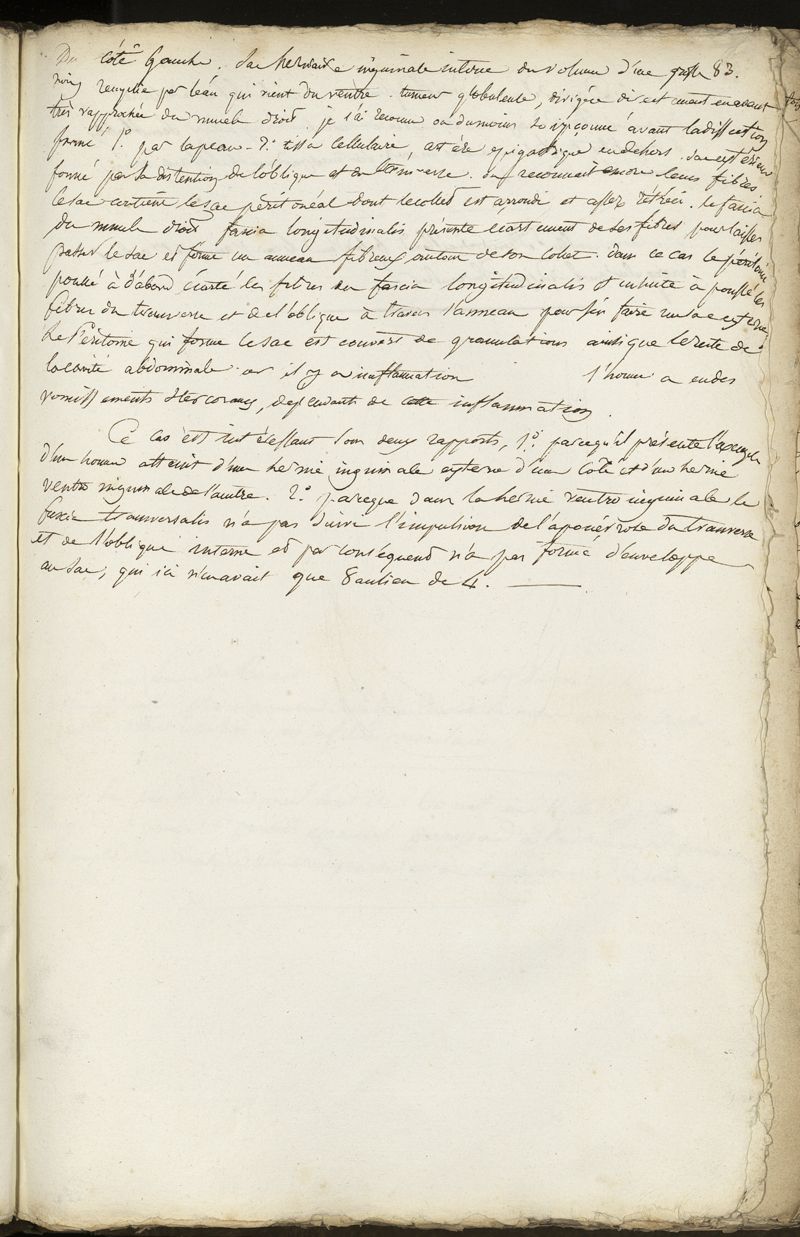 Du côté Gauche. Sac herniaire inguinale interne du volume d'une grosse 83.
noix remplie par l'eau qui vient du ventre. tumeur globuleuse, dirigée directement en avant
très rapprochée du muscle droit je l'ai reconnu ou du moins soupçonné avant la dissection
formé 1.º par la peau - 2.º tissu cellulaire, artère epigastrique en dehors. Sac extérieur
formé par la distention de l'oblique et du transverse. on reconnait encore leurs fibres
le sac contient le sac péritonéal dont le collet est arrondi et assez rétréci. le fascia
du muscle droit fascia longitudinalis présente écartement de ses fibres pour laisser
passer le sac et forme un anneau fibreux autour de son collet. dans ce cas le péritoine
poussé à d'abord écarté les fibres du fascia longitudinalis et ensuite à poussé les
fibres du transverse et de l'oblique à travers l'anneau pour s'en faire un sac externe
Le Péritoine qui forme le sac est couvert de granulations ainsi que le reste de
la cavité abdominale. car il y a inflammation l'homme a eu des
vomissements stercoraux, dependants de cette inflammation.
Ce cas est intéressant sous deux rapports, 1.º parcequ'il présente l'exemple
d'un homme atteint d'une hernie inguinale externe d'un côté et d'une hernie
ventro inguinale de l'autre. 2.º parceque dans la hernie ventro inguinale le
fascia transversalis n'a pas suivi l'impulsion de l'aponévrose du transverse
et de l'oblique interne et par conséquend n'a pas formé d'enveloppe
au sac, qui ici n'en avait que 3 au lieu de 4.